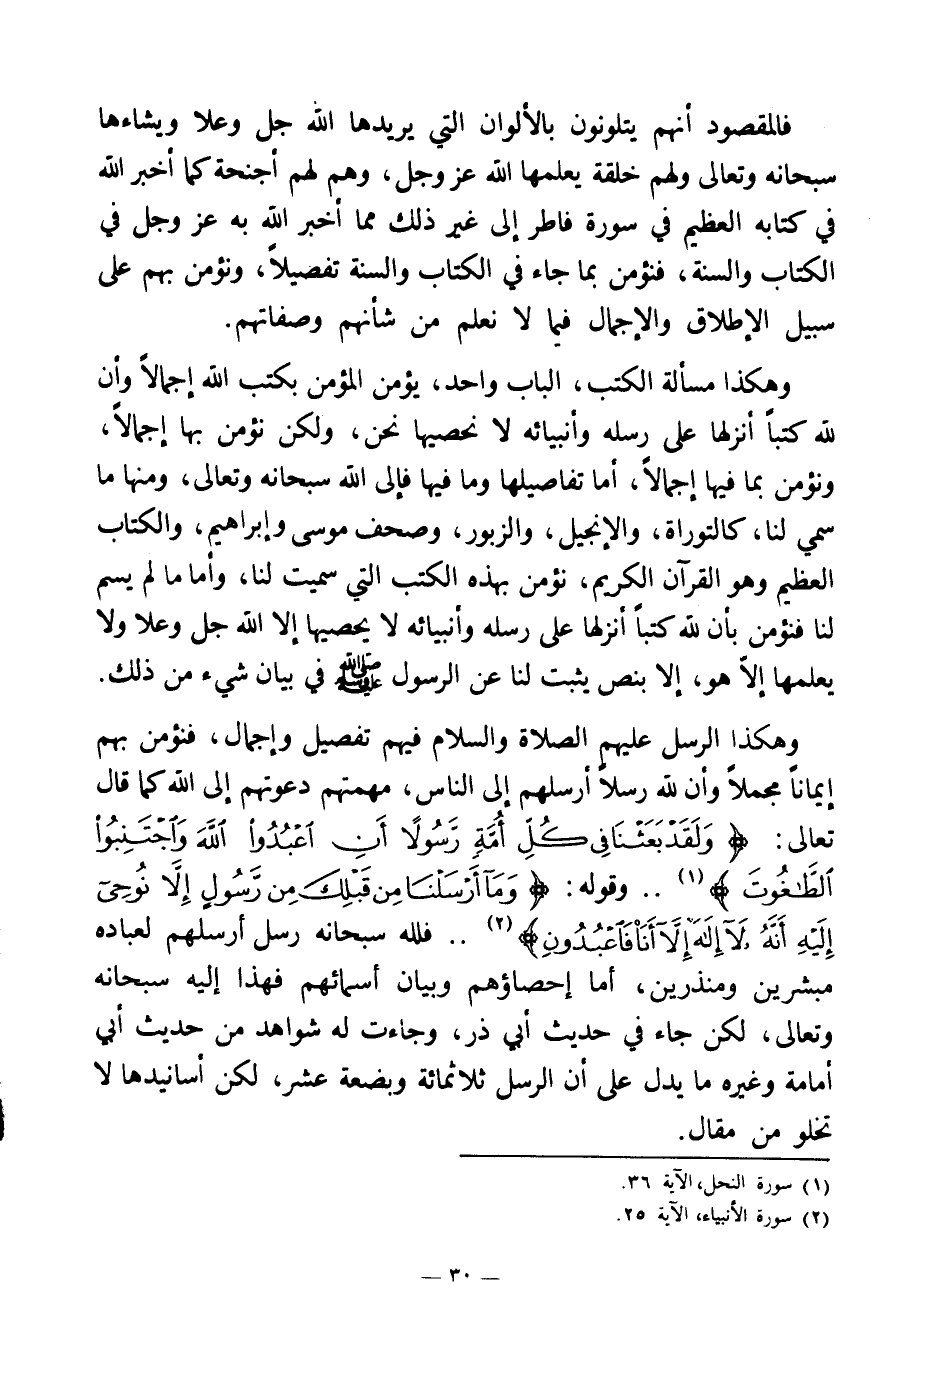 فالمقصود أنهم يتلونون بالألوان التي يريدها الله جل وعلا ويشاءها
سبحانه وتعالى ولهم خلقة يعلمها الله عز وجل، وهم لهم أجنحة كما أخبر الله
في كتابه العظيم في سورة فاطر إلى غير ذلك مما أخبر الله به عز وجل في
الكتاب والسنة، فنؤمن بما جاء في الكتاب والسنة تفصيلاً، ونؤمن بهم على
سبيل الإطلاق والإجمال فيما لا نعلم من شأنهم وصفاتهم.
وهكذا مسألة الكتب، الباب واحد، يؤمن المؤمن بكتب الله إجمالاً وأن
لله كتباً أنزلها على رسله وأنبيائه لا نحصيها نحن، ولكن نؤمن بها إجمالاً،
ونؤمن بما فيها إجمالاً، أما تفاصيلها وما فيها فإلى الله سبحانه وتعالى، ومنها ما
سمي لنا، كالتوراة، والإنجيل، والزبور، وصحف موسى وإبراهيم، والكتاب
العظيم وهو القرآن الكريم، نؤمن بهذه الكتب التي سميت لنا، وأما ما لم يسم
لنا فنؤمن بأن لله كتباً أنزلها على رسله وأنبيائه لا يحصيها إلا الله جل وعلا ولا
يعلمها إلاّ هو، إلا بنص يثبت لنا عن الرسول ﷺ في بيان شيء من ذلك.
وهكذا الرسل عليهم الصلاة والسلام فيهم تفصيل وإجمال، فنؤمن بهم
إيماناً مجملاً وأن لله رسلاً أرسلهم إلى الناس، مهمتهم دعوتهم إلى الله كما قال
تعالى: ﴿ وَلَقَدْ بَعَثْنَا فِي كُلِّ أُمَّةٍ رَّسُولًا أَنِ ٱعْبُدُوا۟ ٱللَّهَ وَٱجْتَنِبُوا۟
ٱلطَّٰغُوتَ ﴾(١) .. وقوله: ﴿ وَمَآ أَرْسَلْنَا مِن قَبْلِكَ مِن رَّسُولٍ إِلَّا نُوحِىٓ
إِلَيْهِ أَنَّهُۥ لَآ إِلَٰهَ إِلَّآ أَنَا۠ فَٱعْبُدُونِ ﴾(٢) .. فلله سبحانه رسل أرسلهم لعباده
مبشرين ومنذرين، أما إحصاؤهم وبيان أسمائهم فهذا إليه سبحانه
وتعالى، لكن جاء في حديث أبي ذر، وجاءت له شواهد من حديث أبي
أمامة وغيره ما يدل على أن الرسل ثلاثمائة وبضعة عشر، لكن أسانيدها لا
تخلو من مقال.
(١) سورة النحل، الآية ٣٦.
(٢) سورة الأنبياء، الآية ٢٥.
— ٣٠ —